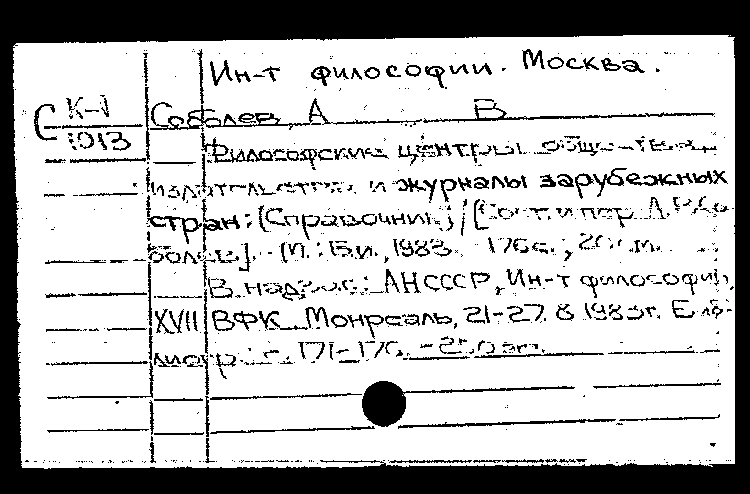 Ин-т философии. Москва.
С К-1
1013
Соболев А В
Философские центры, общества,
издательства и журналы зарубежных
стран: (Справочник) / [Сост. и пер. А.В.Со-
болев]. - М.: Б.и., 1983. - 176с.; 20 см.
В надзаг.: АН СССР, Ин-т философии,
XVII ВФК Монреаль, 21-27. 8 1983г. Биб-
лиогр.: с. 171-176. - 250 экз.